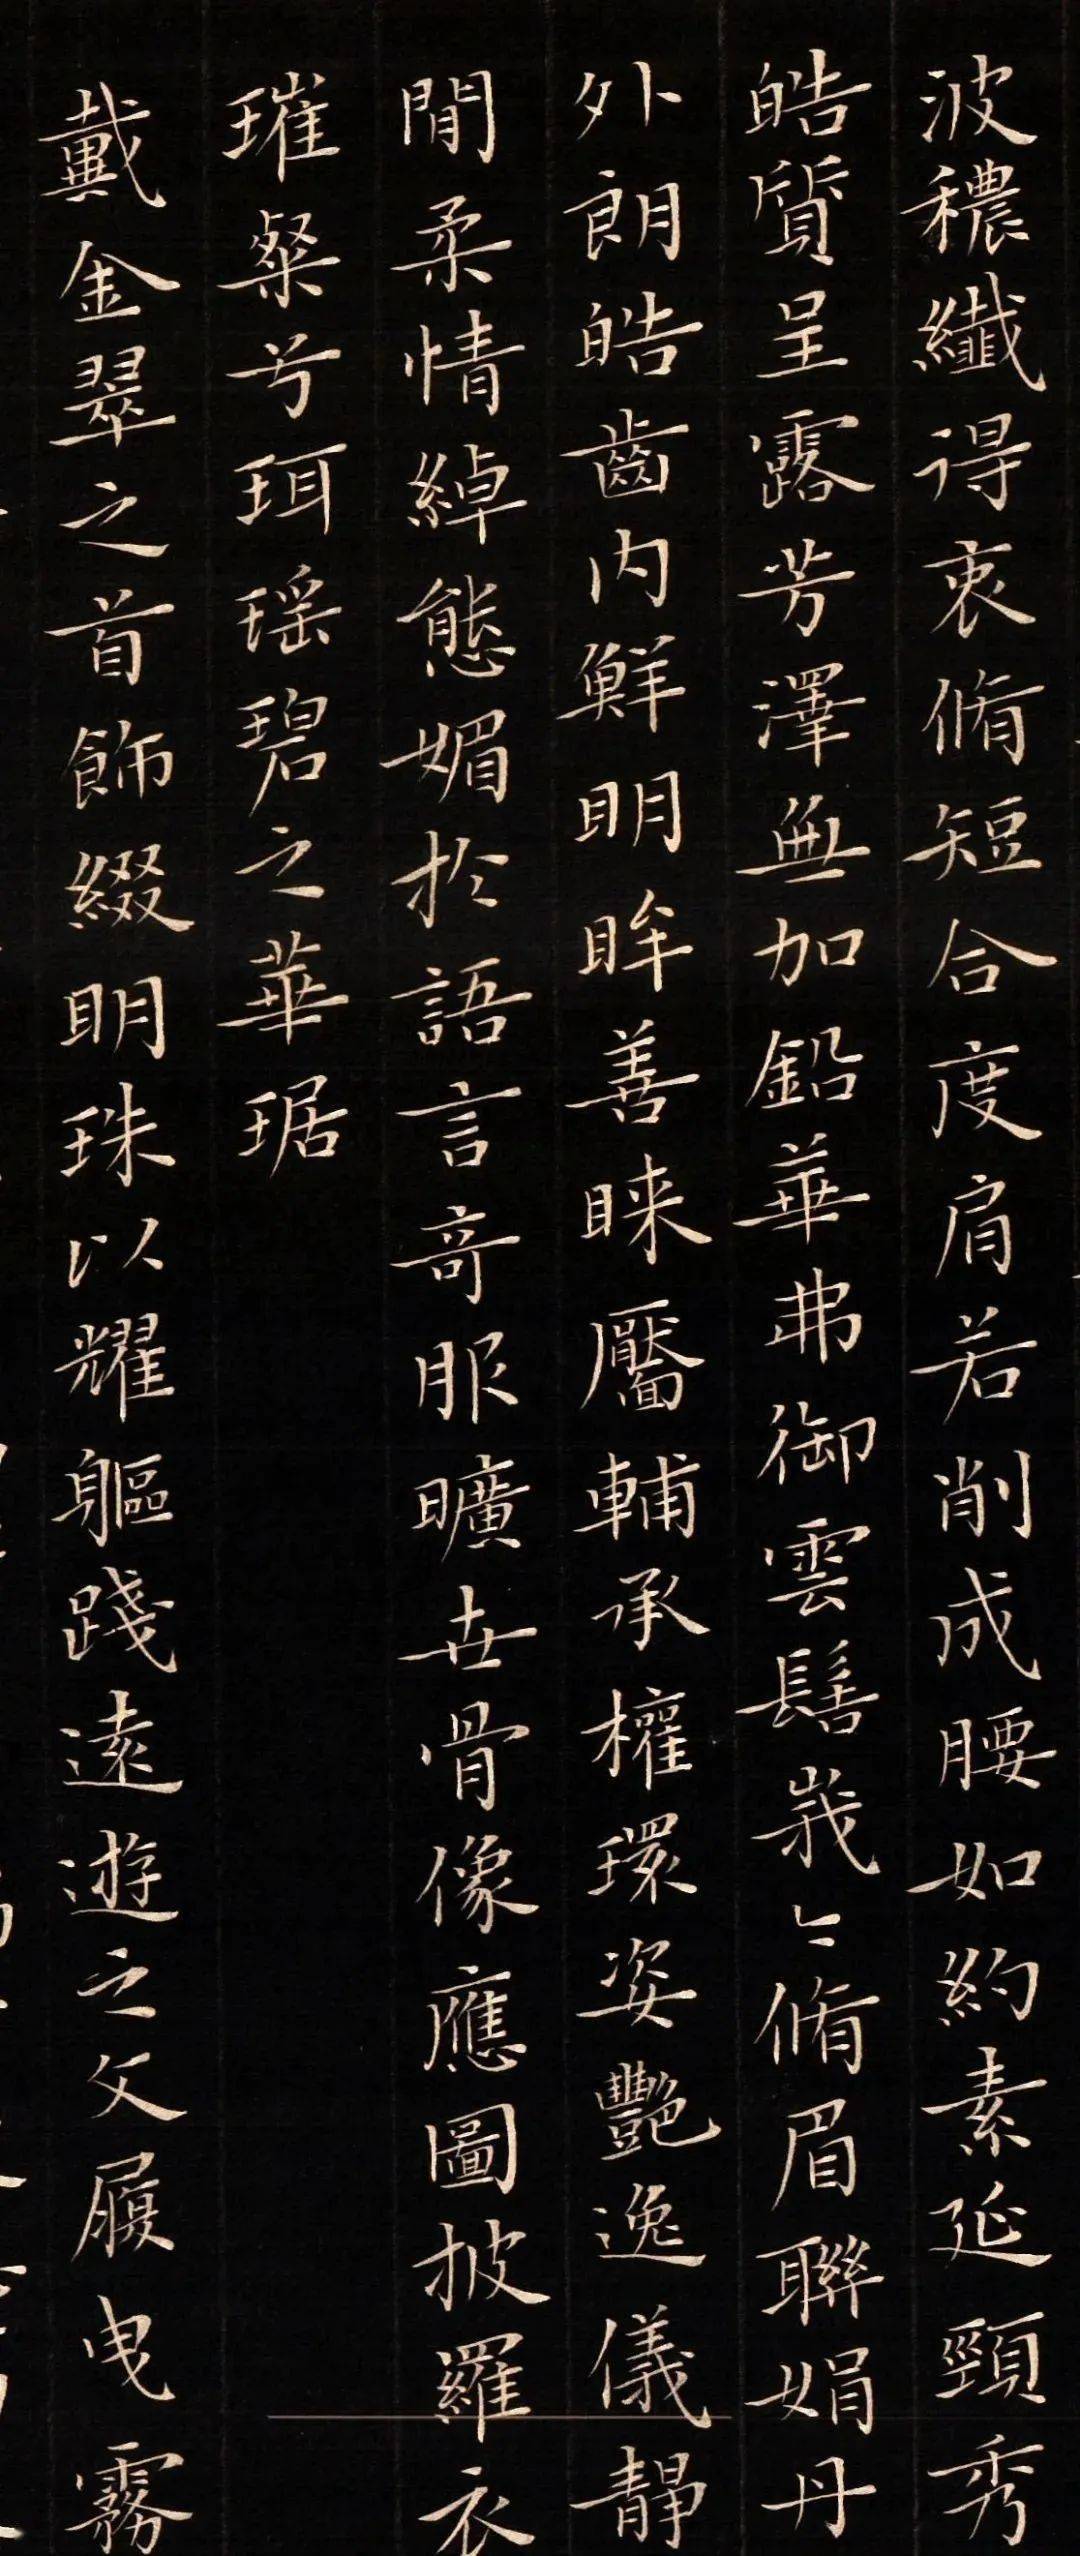 波穠纖得衷脩短合度肩若削成腰如約素延頸秀
皓質呈露芳澤無加鉛華弗御雲髻峩〻脩眉聯娟丹
外朗皓齒內鮮明眸善睞靨輔承權環姿艷逸儀靜
閒柔情綽態媚於語言奇服曠世骨像應圖披羅衣
璀粲兮珥瑤碧之華琚
戴金翠之首飾綴明珠以耀軀踐遠遊之文履曳霧